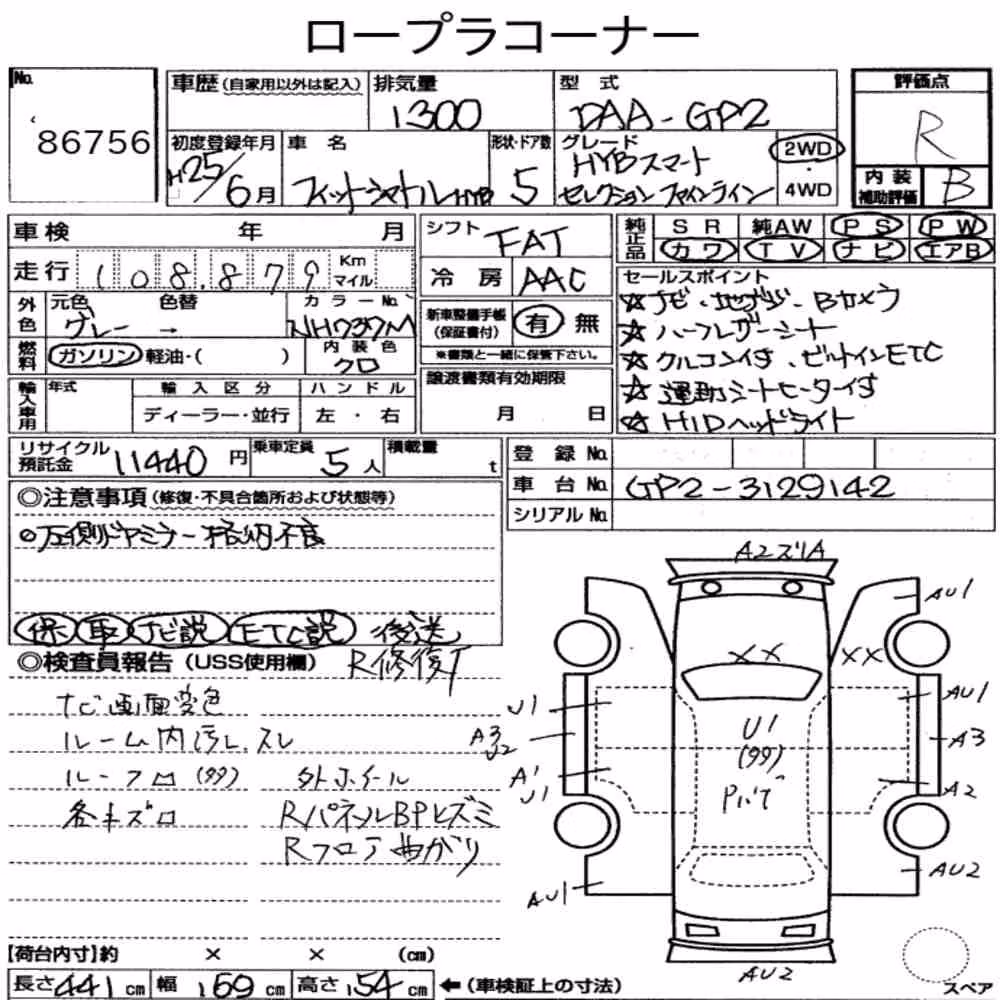 ロープラコーナー
No. 86756
車歴 (自家用以外は記入) 排気量 1300 型式 DAA-GP2
初度登録年月 H25/6月 車名 フィットシャトルHYB 形状・ドア数 5 グレード HYBスマートセレクション ファインライン 2WD・4WD
評価点 R
内装補助評価 B
車検 年 月
走行 108,879 Km マイル
外色 元色 グレー → 色替 カラーNo. NH737M
燃料 ガソリン 軽油・( ) 内装色 クロ
輸入車用 年式 輸入区分 ディーラー・並行 ハンドル 左・右
シフト FAT
冷房 AAC
新車整備手帳(保証書付) 有 無
※書類と一緒に保管下さい。
譲渡書類有効期限
月 日
純正品 SR 純AW PS PW
カワ TV ナビ エアB
セールスポイント
☆ナビ・地デジ・Bカメラ
☆ハーフレザーシート
☆クルコン付 ビルトインETC
☆運助シートヒーター付
☆HIDヘッドライト
リサイクル預託金 11440円 乗車定員 5人 積載量 t
登録No.
車台No. GP2-3129142
シリアルNo.
◎注意事項 (修復・不具合箇所および状態等)
○左側ドアミラー格納不良
保 取 ナビ説 ETC説 後送
◎検査員報告 (USS使用欄) R修復了
ナビ画面変色
ルーム内汚レ、スレ
ルーフロ (99) 外ホイール
各キズロ RパネルBPヒズミ
Rフロア曲がり
A2ズリA
AU1
XX XX
U1 AU1
A3 U2 A3
U1 (99) Pバケ
A1 U1 A2
AU1 AU2
AU2
スペア
【荷台内寸】約 × × (cm)
長さ441cm 幅169cm 高さ154cm ←(車検証上の寸法)